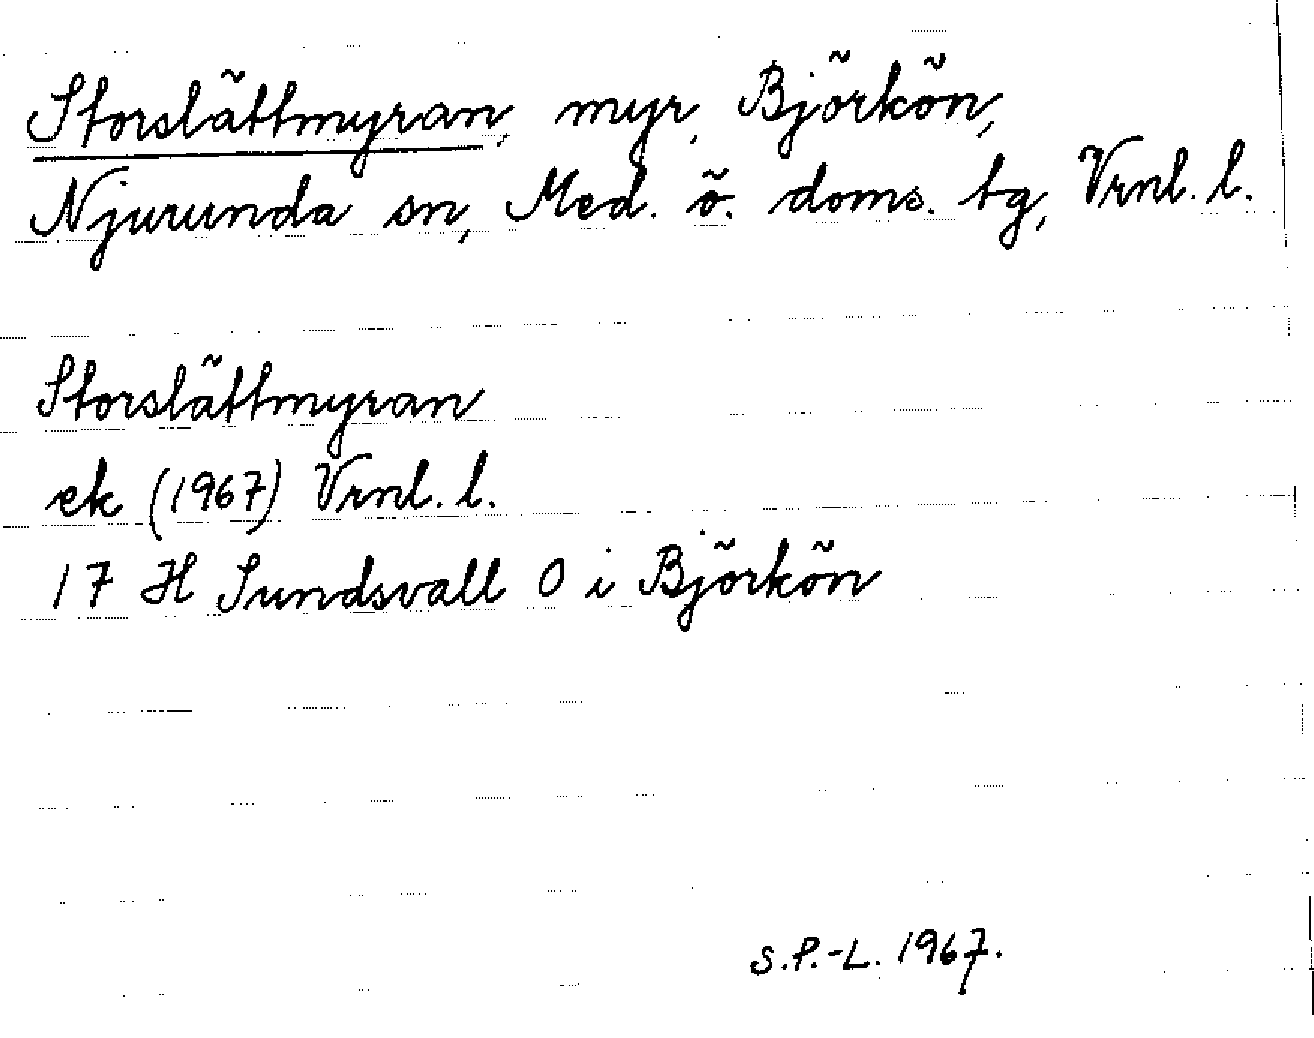 Storslättmyran, myr, Björkön,
Njurunda sn, Med. ö. doms. tg, Vrnl. l.
Storslättmyran
ek (1967) Vrnl. l.
17 H Sundsvall O i Björkön
S.P.-L. 1967.